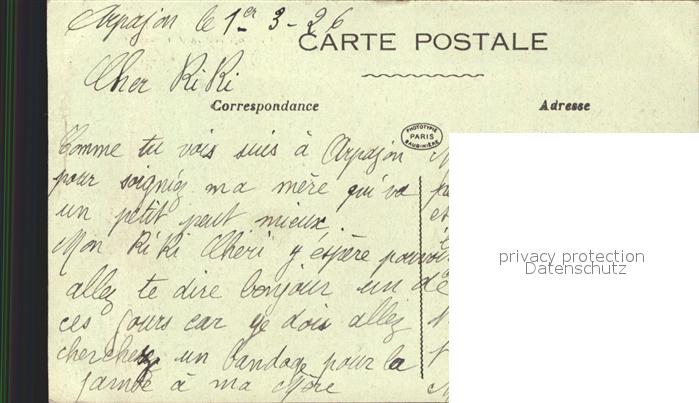 Arpajon le 1er 3-26
CARTE POSTALE
Cher RiRi
Correspondance
Adresse
PHOTOTYPIE
PARIS
BAUDINIÈRE
Comme tu vois suis à Arpajon
pour soigniéz ma mère qui va
un petit peut mieux.
Mon RiRi Chéri y éspère pouvoir
allez te dire bonjour un de
ces jours car ye dois allez
cherchez un bandage pour la
jambe à ma Mère
privacy protection
Datenschutz